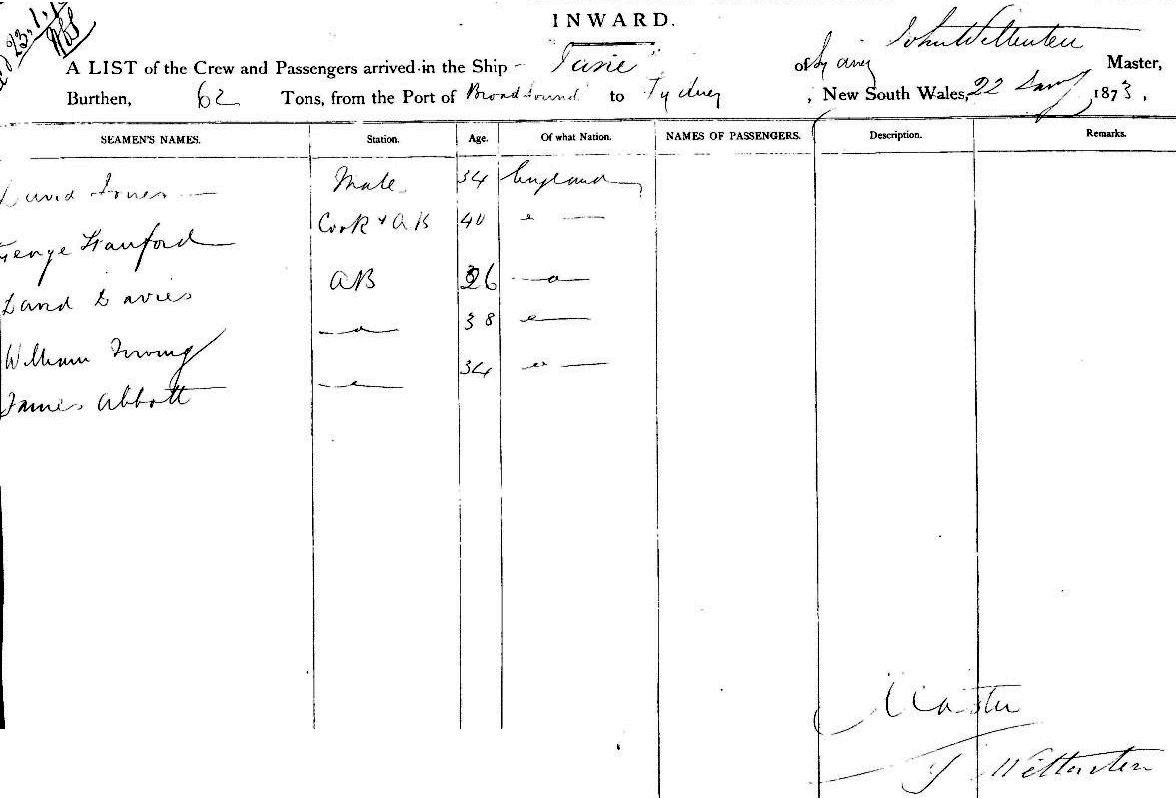 23.1.
INWARD.
John
A LIST of the Crew and Passengers arrived in the Ship " " of Sydney Master,
Burthen, 62 Tons, from the Port of Broadsound to Sydney , New South Wales, 22 Jany 1873,
SEAMEN'S NAMES. Station. Age. Of what Nation. NAMES OF PASSENGERS. Description. Remarks.
David Jones Mate 34 England
George Stanford Cook & AB 40 "
David Davies AB 26 "
William Irving " 38 "
James Abbott " 34 "
Master
J